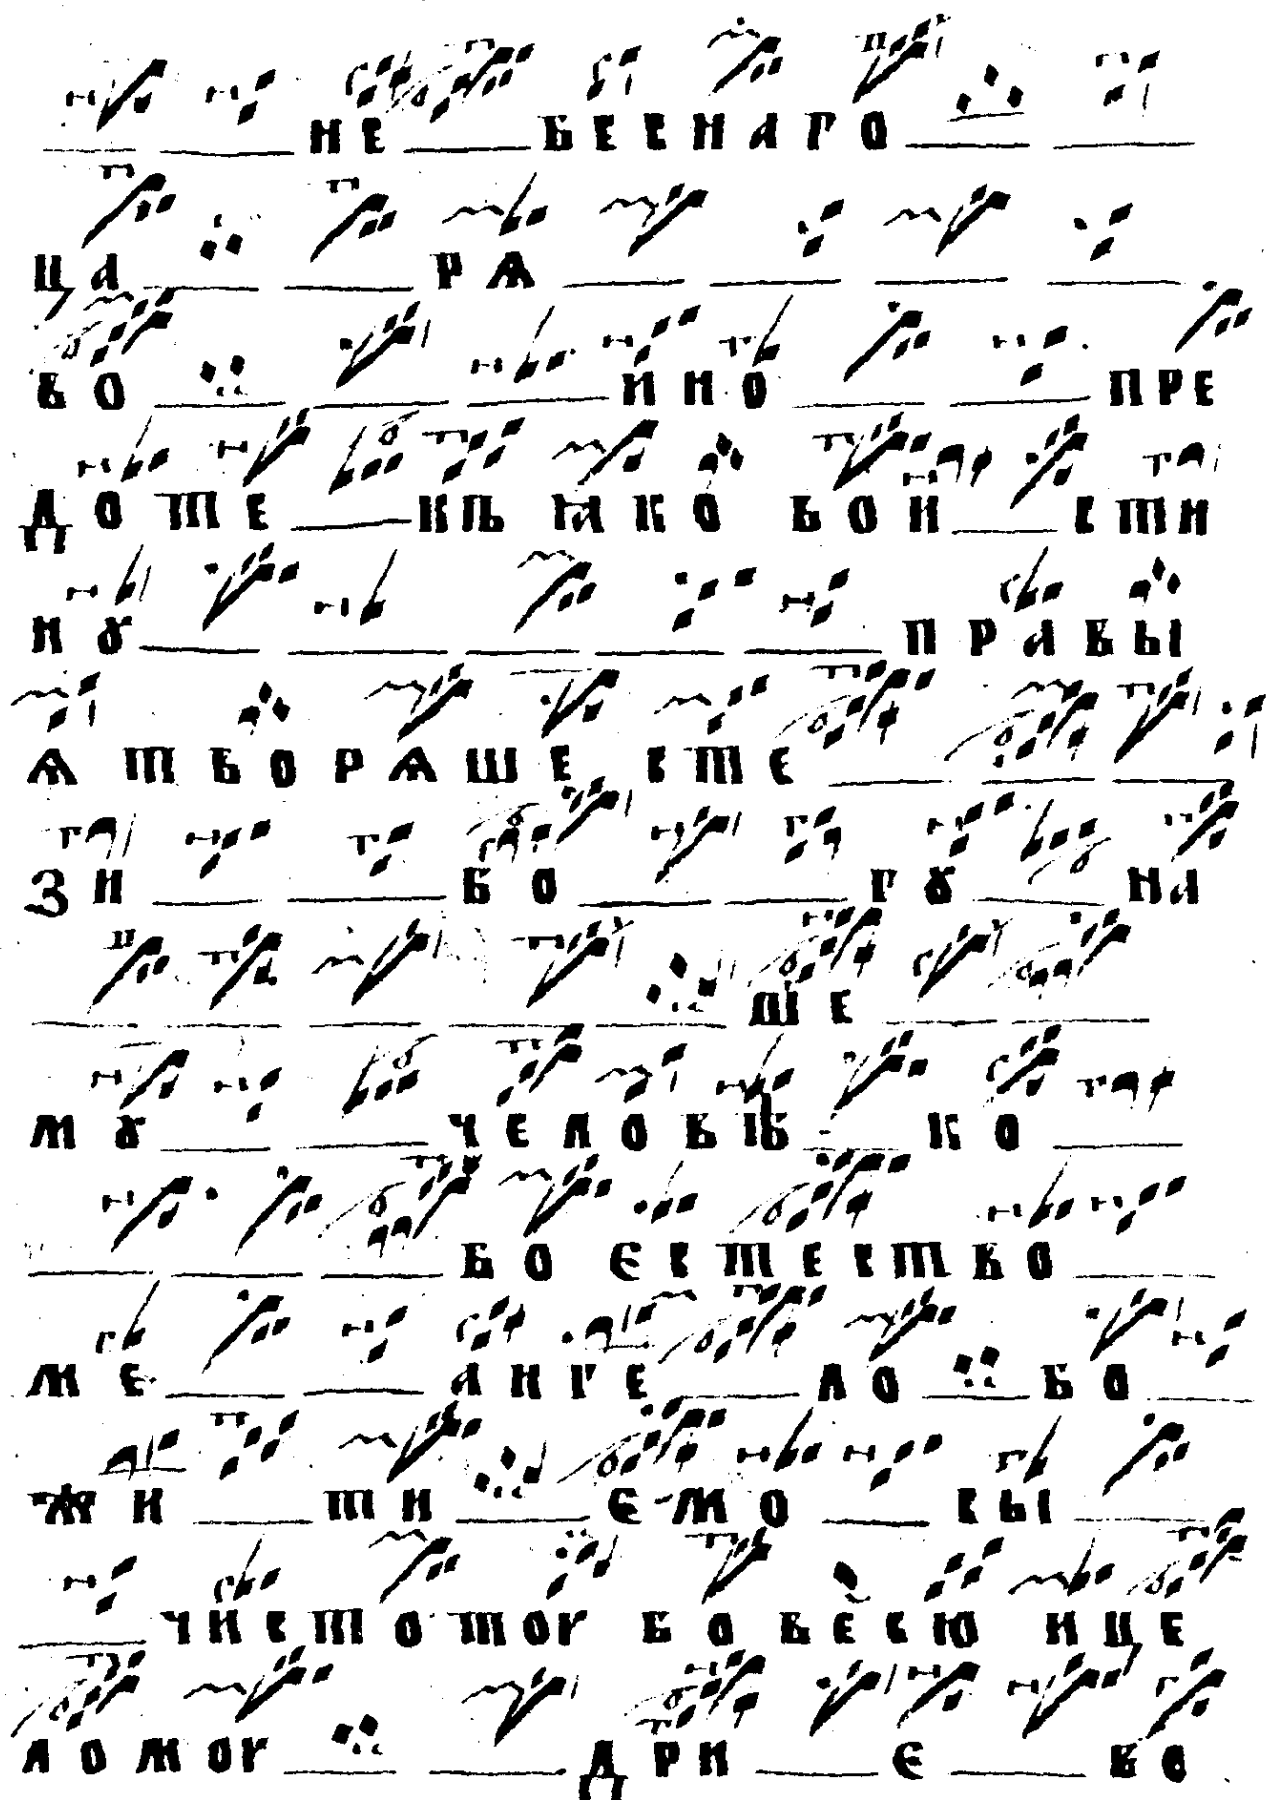 НЕ БЕСНАГО
ЦА РѦ
ВО ИНО ПРЕ
ДОТЕ КѢ ꙖКО ВОИ СТИ
НꙊ ПРАВЫ
Ѧ ТВОРѦШЕ СТЕ
ЗИ БО ГꙊ НА
ШЕ
МꙊ ЧЕЛОВѢ КО
БО ЄСТЕСТВО
МЕ АНГЕ ЛО БО
ЖИ ТИ ЄМО СЫ
ЧИСТОТОУ БО ВЕСЮ ИЦЕ
ЛОМОУ ДРИ Є ВО